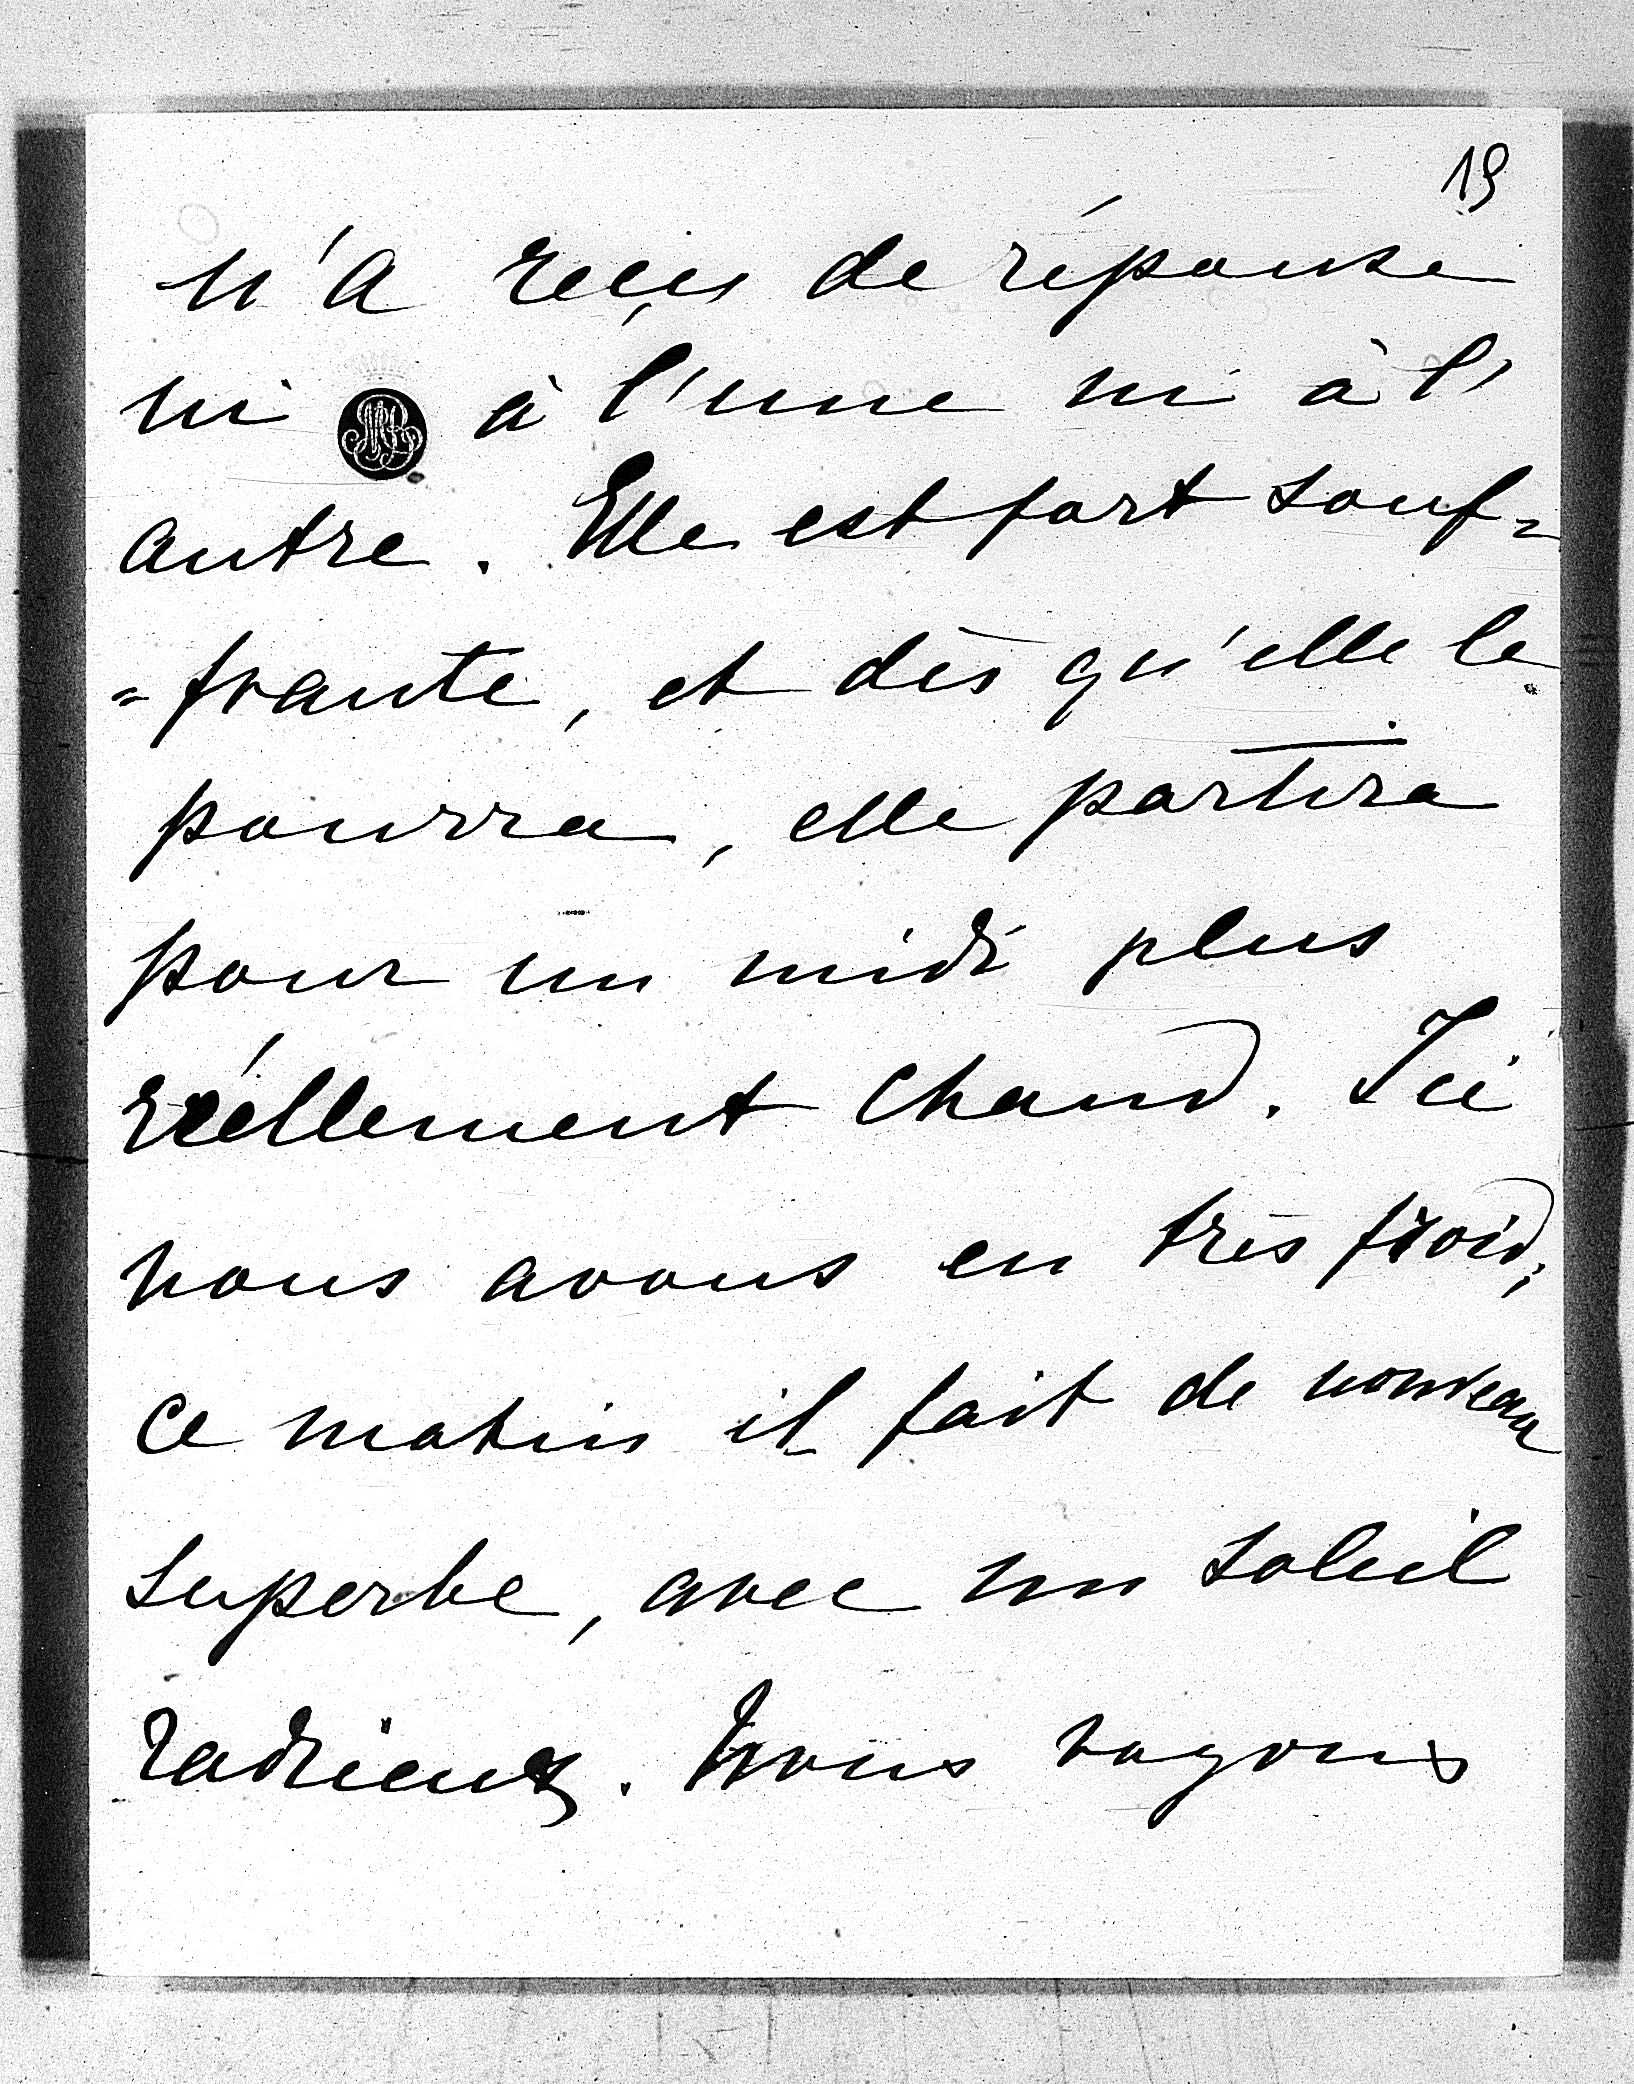 19
n'a reçu de réponse
ni à l'une ni à l'
autre. Elle est fort souf=
=frante, et dès qu'elle le
pourra, elle partira
pour un midi plus
réellement chaud. Ici
nous avons eu très froid;
ce matin il fait de nouveau
superbe, avec un soleil
radieux. Nous voyons